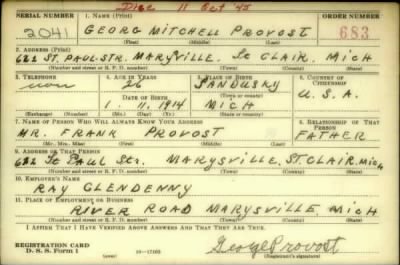 Disc 11 Oct '45
SERIAL NUMBER 1. NAME (Print) ORDER NUMBER
2041 GEORG MITCHELL PROVOST 683
(First) (Middle) (Last)
2. ADDRESS (Print)
622 ST. PAUL STR. MARYSVILLE. St CLAIR. MICH
(Number and street or R. F. D. number) (Town) (County) (State)
3. TELEPHONE 4. AGE IN YEARS 5. PLACE OF BIRTH 6. COUNTRY OF CITIZENSHIP
non 26 SANDUSKY
DATE OF BIRTH (Town or county) U.S.A.
1. 11. 1914 MICH
(Exchange) (Number) (Mo.) (Day) (Yr.) (State or country)
7. NAME OF PERSON WHO WILL ALWAYS KNOW YOUR ADDRESS 8. RELATIONSHIP OF THAT PERSON
MR. FRANK PROVOST FATHER
(Mr., Mrs., Miss) (First) (Middle) (Last)
9. ADDRESS OF THAT PERSON
622 St PAUL Str. MARYSVILLE, ST CLAIR. Mich
(Number and street or R. F. D. number) (Town) (County) (State)
10. EMPLOYER'S NAME
RAY GLENDENNY
11. PLACE OF EMPLOYMENT OR BUSINESS
RIVER ROAD MARYSVILLE, MICH
(Number and street or R. F. D. number) (Town) (County) (State)
I AFFIRM THAT I HAVE VERIFIED ABOVE ANSWERS AND THAT THEY ARE TRUE.
REGISTRATION CARD
D. S. S. Form 1 (over) 16—17105 George Provost
(Registrant's signature)